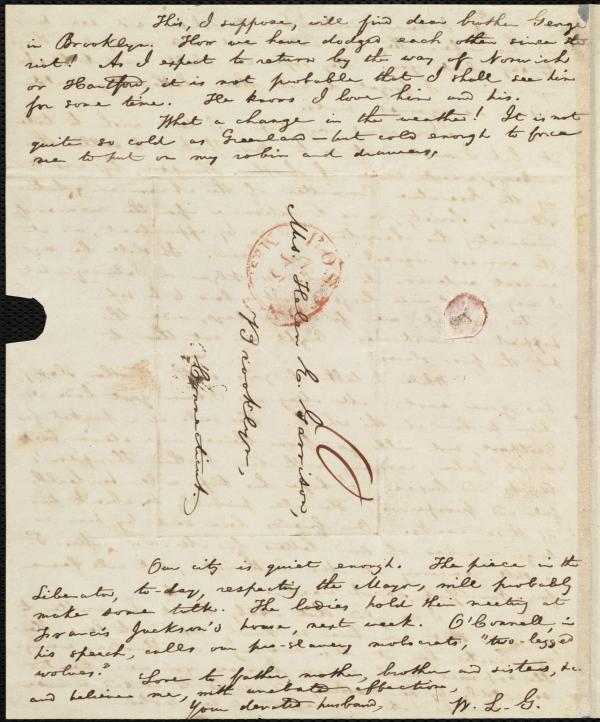 This, I suppose, will find dear brother George
in Brooklyn. How we have dodged each other since the
riot! As I expect to return by the way of Norwich
or Hartford, it is not probable that I shall see him
for some time. He knows I love him and his.
What a change in the weather! It is not
quite so cold as Greenland—but cold enough to force
me to put on my robin and drawers.
Mrs. Helen E. Garrison,
Brooklyn,
Connecticut.
6
BOS
MAS
Our city is quiet enough. The piece in the
Liberator, to-day, respecting the Mayor, will probably
make some talk. The ladies hold their meeting at
Francis Jackson's house, next week. O'Connell, in
his speech, calls our pro-slavery mobocrats, "two-legged
wolves." Love to father, mother, brother and sisters, &c.
and believe me, with unabated affection,
Your devoted husband, W. L. G.